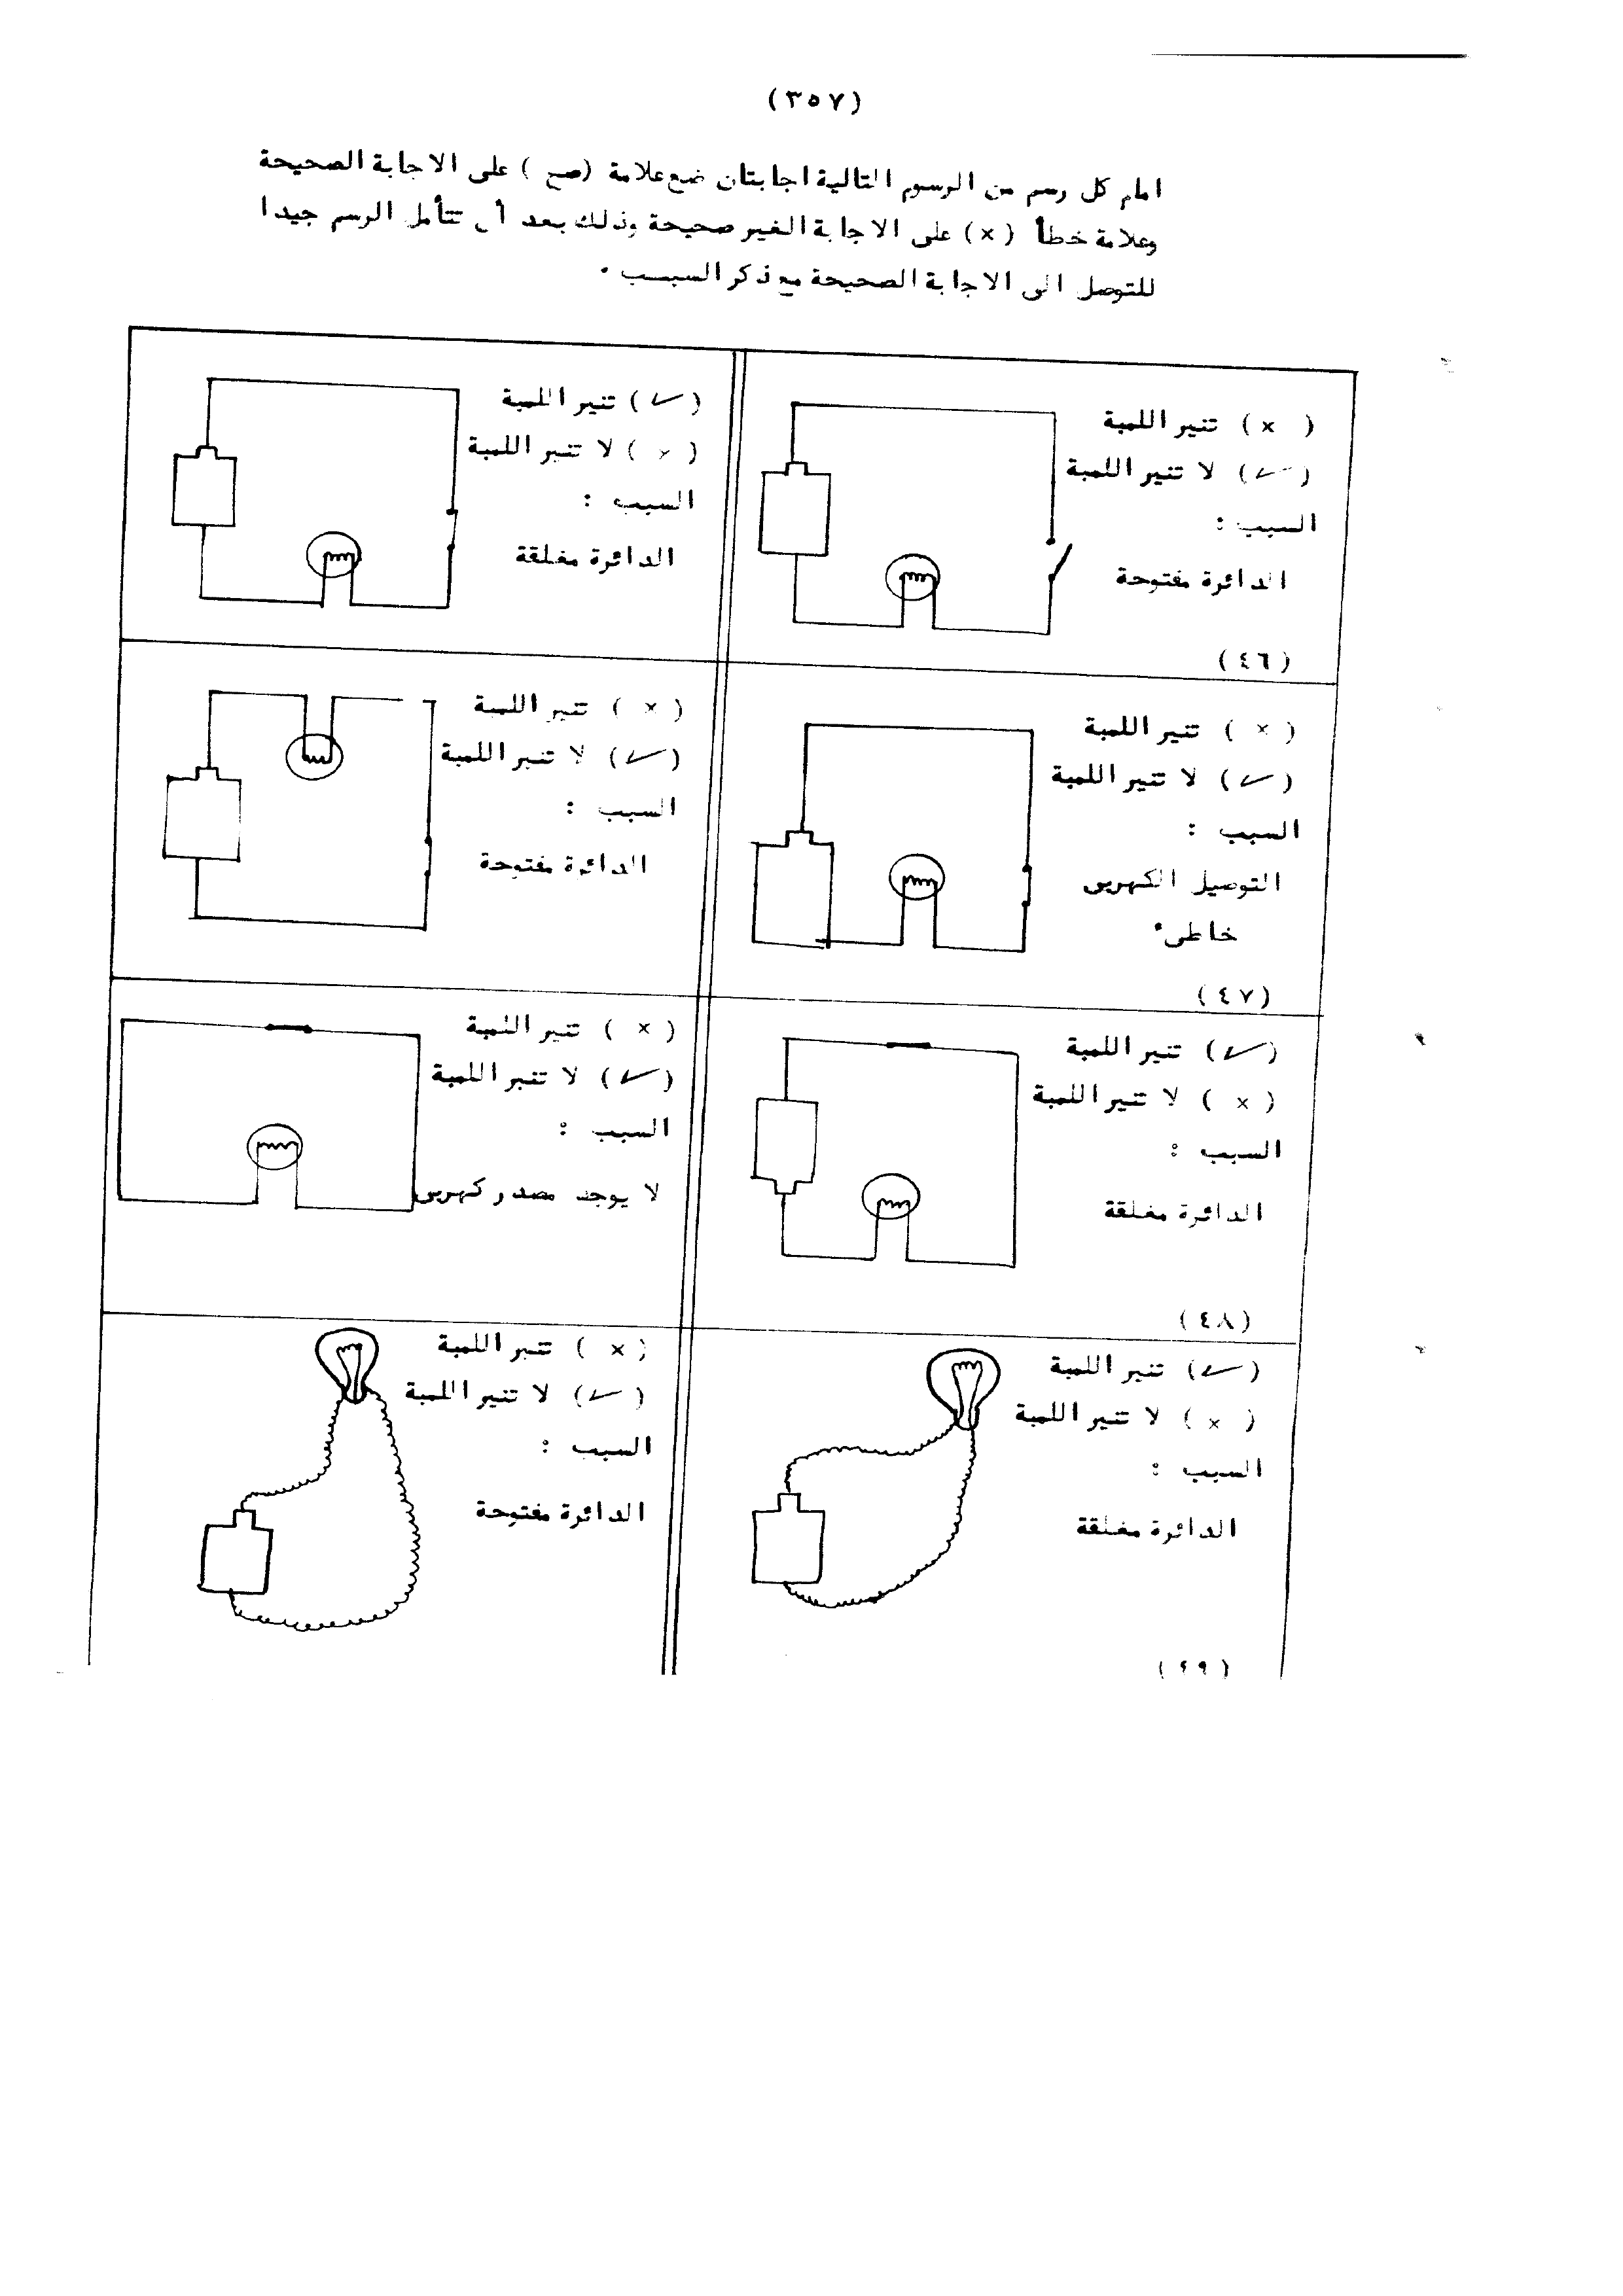 (٣٥٧)
امام كل رسم من الرسوم التالية اجابتان ضع علامة (صح ) على الاجابة الصحيحة
وعلامة خطأ (×) على الاجابة الغير صحيحة وذلك بعد أن تتأمل الرسم جيدا
للتوصل الى الاجابة الصحيحة مع ذكر السبب .
( × ) تنير اللمبة
(✓) لا تنير اللمبة
السبب :
الدائرة مفتوحة
(٤٦)
(✓) تنير اللمبة
( × ) لا تنير اللمبة
السبب :
الدائرة مغلقة
( × ) تنير اللمبة
(✓) لا تنير اللمبة
السبب :
التوصيل الكهربى
خاطىء
(٤٧)
( × ) تنير اللمبة
(✓) لا تنير اللمبة
السبب :
الدائرة مفتوحة
(✓) تنير اللمبة
( × ) لا تنير اللمبة
السبب :
الدائرة مغلقة
(٤٨)
( × ) تنير اللمبة
(✓) لا تنير اللمبة
السبب :
لا يوجد مصدر كهربى
(✓) تنير اللمبة
( × ) لا تنير اللمبة
السبب :
الدائرة مغلقة
(٤٩)
( × ) تنير اللمبة
(✓) لا تنير اللمبة
السبب :
الدائرة مفتوحة